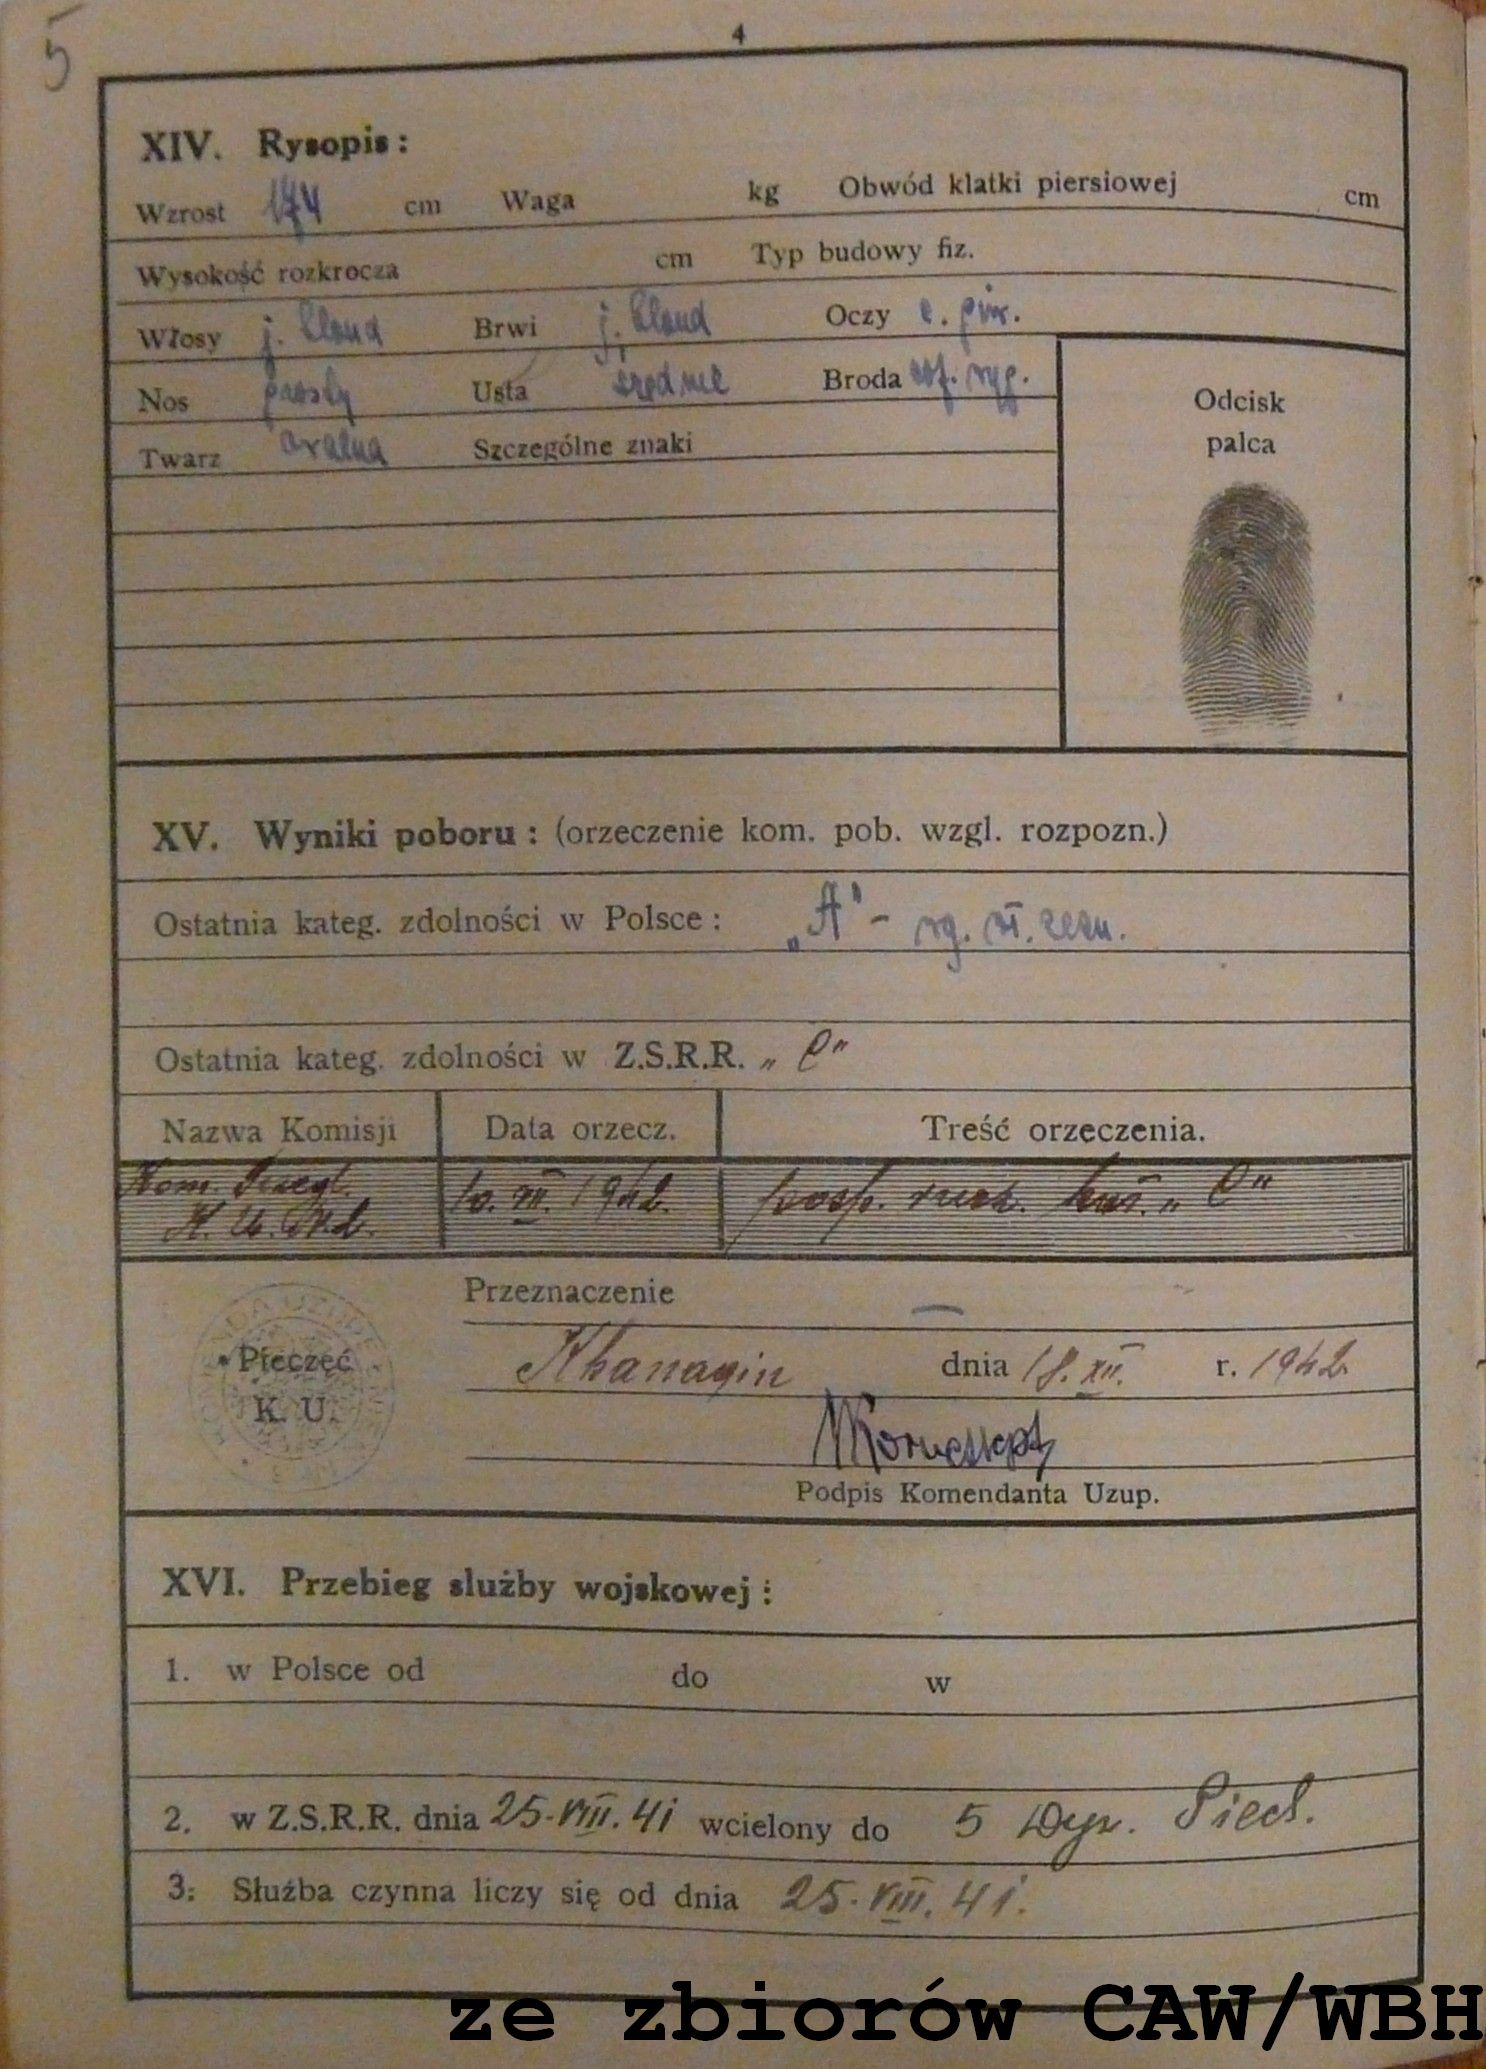 5
4
XIV. Rysopis:
Wzrost 174 cm Waga kg Obwód klatki piersiowej cm
Wysokość rozkrocza cm Typ budowy fiz.
Włosy j. blond Brwi j. blond Oczy c. piw.
Nos prosty Usta średnie Broda
Twarz owalna Szczególne znaki
Odcisk
palca
XV. Wyniki poboru: (orzeczenie kom. pob. wzgl. rozpozn.)
Ostatnia kateg. zdolności w Polsce: „A" - wg. wł. zezn.
Ostatnia kateg. zdolności w Z.S.R.R. „C"
Nazwa Komisji Data orzecz. Treść orzeczenia.
Kom. 10. XII. 1942. posp. rusz. kat. „C"
Przeznaczenie —
Pieczęć
K. U.
Khanaqin dnia 18. XII. r. 1942
Podpis Komendanta Uzup.
XVI. Przebieg służby wojskowej:
1. w Polsce od do w
2. w Z.S.R.R. dnia 25.VIII.41 wcielony do 5 Dyw. Piech.
3. Służba czynna liczy się od dnia 25.VIII.41.
ze zbiorów CAW/WBH